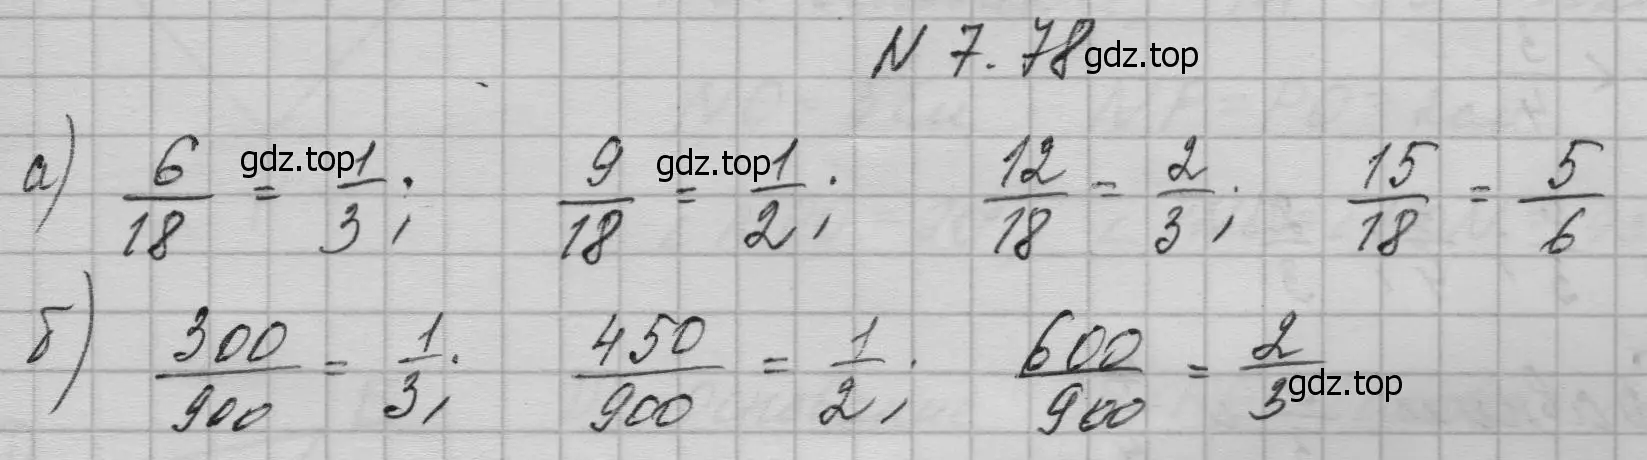 N 7.78 gdz.top
а) 6/18 = gdz.top 1/3; 9/18 = gdz.top 1/2; 12/18 = 2/3; 15/18 = 5/6
б) 300/900 = 1/3; 450/900 = 1/2; 600/900 = 2/3 gdz.top